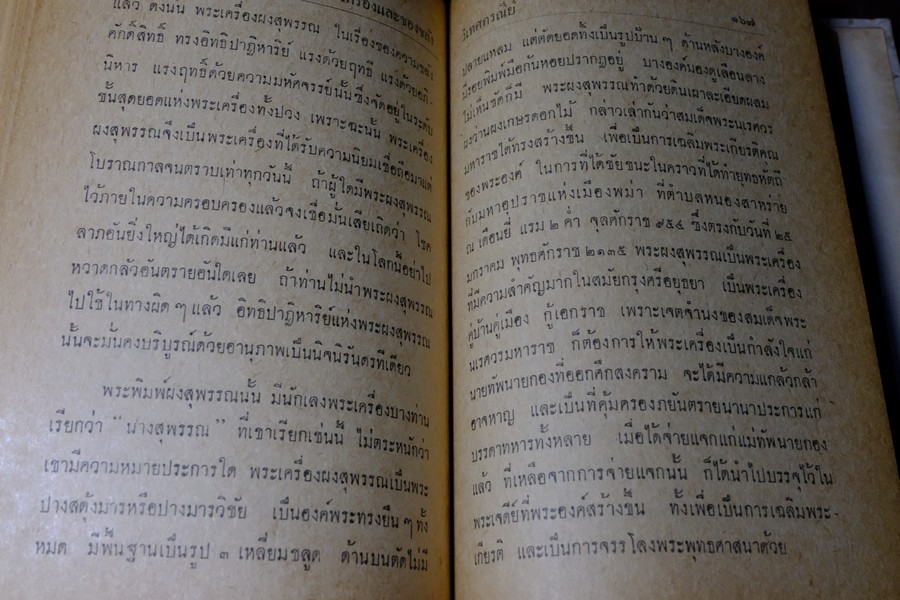 เครื่องและของขลัง
แล้ว ดังนั้น พระเครื่องผงสุพรรณ ในเรื่องของความขลัง
ศักดิ์สิทธิ์ ทรงอิทธิปาฏิหาริย์ แรงด้วยฤทธิ์ แรงด้วยอภิ-
นิหาร แรงฤทธิ์ด้วยความมหัศจรรย์นั้นซึ่งจัดอยู่ในระดับ
ขั้นสุดยอดแห่งพระเครื่องทั้งปวง เพราะฉะนั้น พระเครื่อง
ผงสุพรรณจึงเป็นพระเครื่องที่ได้รับความนิยมเชื่อถือมาแต่
โบราณกาลจนตราบเท่าทุกวันนี้ ถ้าผู้ใดมีพระผงสุพรรณ
ไว้ภายในความครอบครองแล้วจงเชื่อมั่นเสียเถิดว่า โชค
ลาภอันยิ่งใหญ่ได้เกิดมีแก่ท่านแล้ว และในโลกนี้อย่าไป
หวาดกลัวอันตรายอันใดเลย ถ้าท่านไม่นำพระผงสุพรรณ
ไปใช้ในทางผิด ๆ แล้ว อิทธิปาฏิหาริย์แห่งพระผงสุพรรณ
นั้นจะมั่นคงบริบูรณ์ด้วยอานุภาพเป็นนิจนิรันดรทีเดียว
พระพิมพ์ผงสุพรรณนั้น มีนักเลงพระเครื่องบางท่าน
เรียกว่า “นางสุพรรณ” ที่เขาเรียกเช่นนี้ ไม่ตระหนักว่า
เขามีความหมายประการใด พระเครื่องผงสุพรรณเป็นพระ
ปางสดุ้งมารหรือปางมารวิชัย เป็นองค์พระทรงยืน ๆ ทั้ง
หมด มีพื้นฐานเป็นรูป ๓ เหลี่ยมชลูด ด้านบนตัดไม่มี
วิเทศกรณีย์ ๑๖๗
ปลายแหลม แต่ตัดยอดทิ้งเป็นรูปป้าน ๆ ด้านหลังบางองค์
มีรอยพิมพ์มือก้นหอยปรากฏอยู่ บางองค์มองดูเลือนลาง
ไม่เห็นชัดก็มี พระผงสุพรรณทำด้วยดินเผาละเอียดผสม
ผงว่านผงเกษรดอกไม้ กล่าวเล่ากันว่าสมเด็จพระนเรศวร
มหาราชได้ทรงสร้างขึ้น เพื่อเป็นการเฉลิมพระเกียรติคุณ
ของพระองค์ ในการที่ได้ชัยชนะในคราวที่ได้ทำยุทธหัตถี
กับมหาอุปราชแห่งเมืองพม่า ที่ตำบลหนองสาหร่าย
ณ เดือนยี่ แรม ๒ ค่ำ จุลศักราช ๙๕๔ ซึ่งตรงกับวันที่ ๒๕
มกราคม พุทธศักราช ๒๑๓๕ พระผงสุพรรณเป็นพระเครื่อง
ที่มีความสำคัญมากในสมัยกรุงศรีอยุธยา เป็นพระเครื่อง
คู่บ้านคู่เมือง กู้เอกราช เพราะเจตจำนงของสมเด็จพระ
นเรศวรมหาราช ก็ต้องการให้พระเครื่องเป็นกำลังใจแก่
นายทัพนายกองที่ออกศึกสงคราม จะได้มีความแกล้วกล้า
อาจหาญ และเป็นที่คุ้มครองภยันตรายนานาประการแก่
บรรดาทหารทั้งหลาย เมื่อได้จ่ายแจกแก่แม่ทัพนายกอง
แล้ว ที่เหลือจากการจ่ายแจกนั้น ก็ได้นำไปบรรจุไว้ใน
พระเจดีย์ที่พระองค์สร้างขึ้น ทั้งเพื่อเป็นการเฉลิมพระ-
เกียรติ และเป็นการจรรโลงพระพุทธศาสนาด้วย